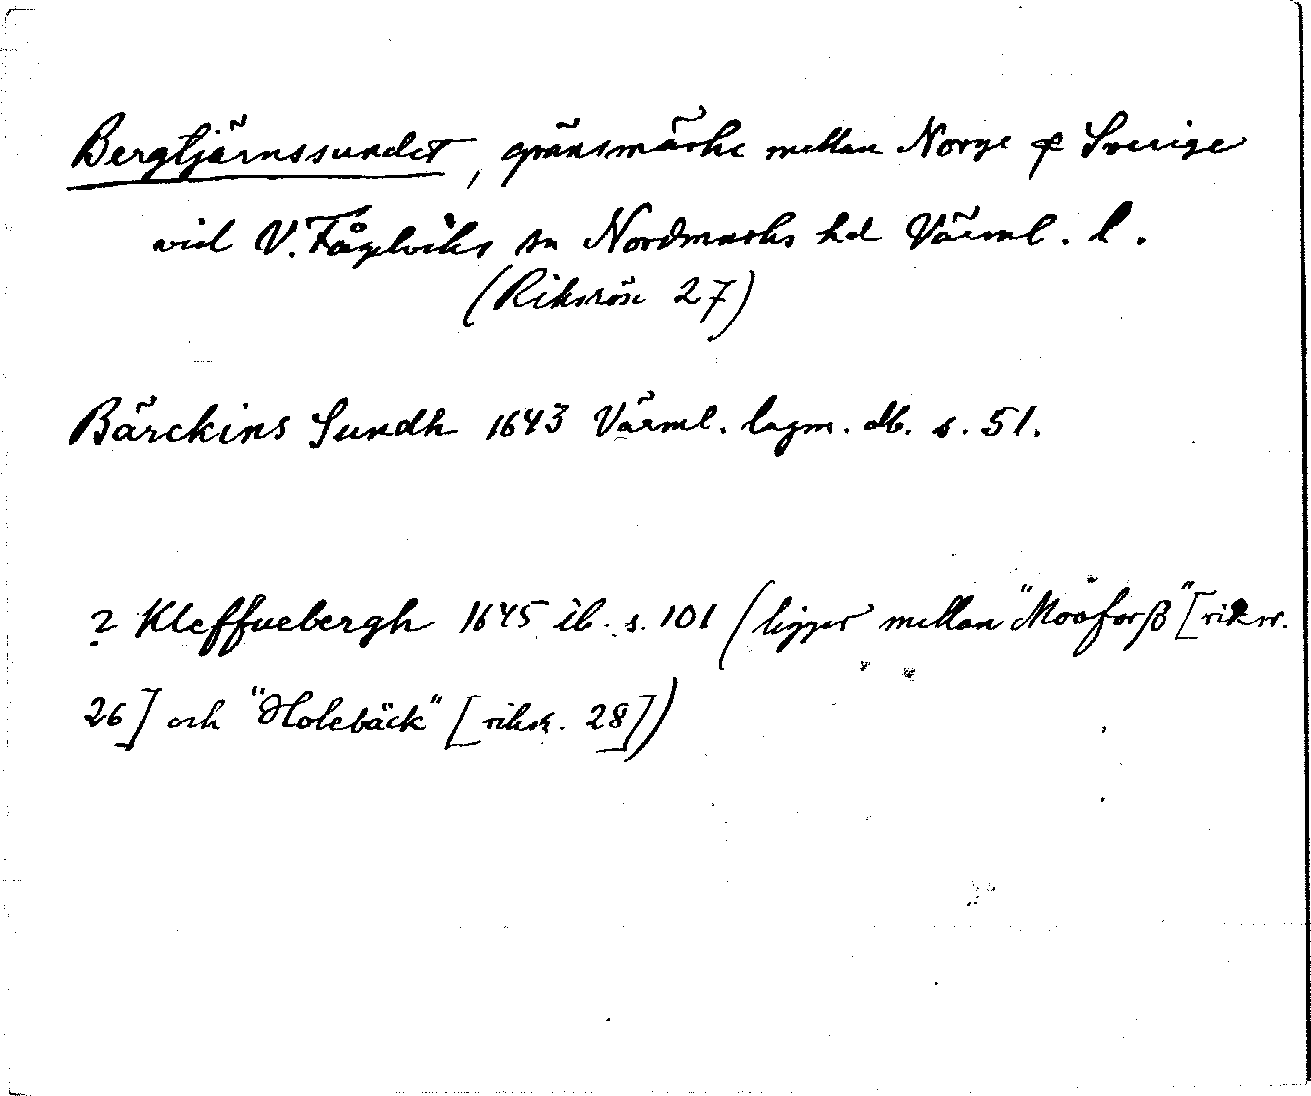 Bergtjärnssundet, gränsmärke mellan Norge & Sverige
vid V. Fågelviks sn Nordmarks hd Värml. l.
(Riksröse 27)
Bärckins Sundh 1643 Värml. lagm. db. s. 51.
? Kleffuebergh 1645 ib. s. 101 (ligger mellan "Mooforß" [riksr.
26] och "Holebäck" [riksr. 28])